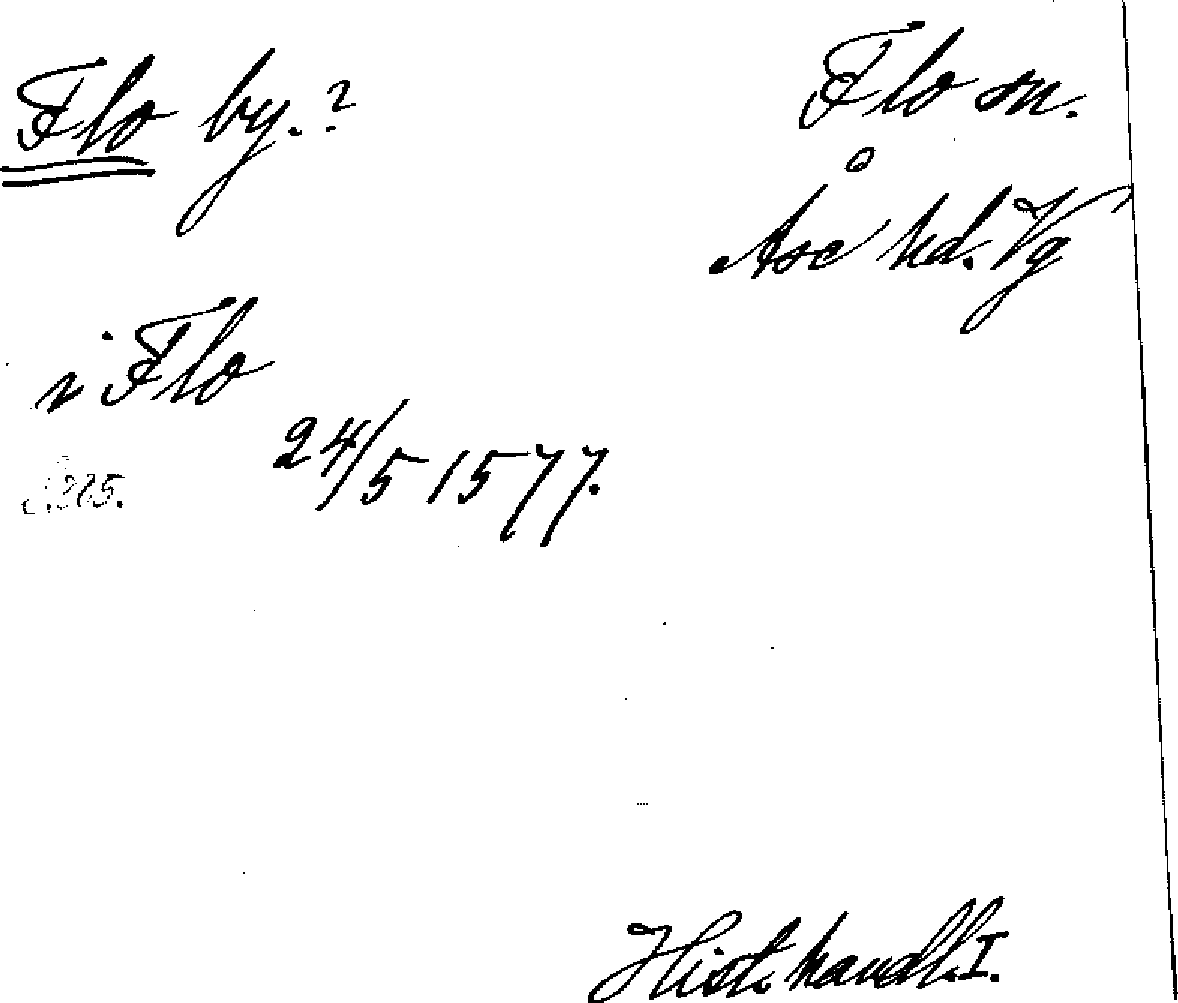 Flo by.?
Flo sn.
Åse hd. Vg
i Flo
24/5 1577.
Hist. handl. I.